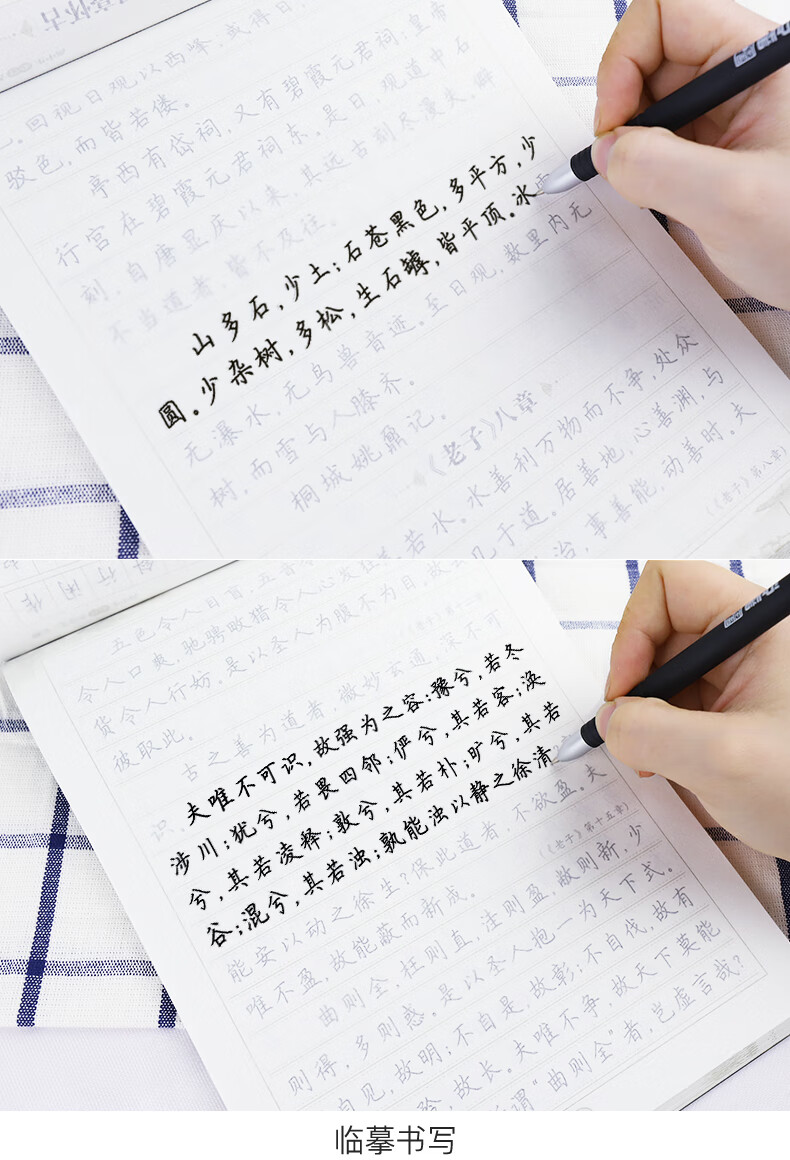 。回视日观以西峰,或得日,
驳色,而皆若偻。
亭西有岱祠,又有碧霞元君祠;皇帝
行宫在碧霞元君祠东。是日,观道中石
刻,自唐显庆以来,其远古刻尽漫失。僻
不当道者,皆不及往。
山多石,少土;石苍黑色,多平方,少
圆。少杂树,多松,生石罅,皆平顶。冰
无瀑水,无鸟兽音迹。至日观,数里内无
树,而雪与人膝齐。
桐城姚鼐记。
《老子》八章
若水。水善利万物而不争,处众
几于道。居善地,心善渊,与
治,事善能,动善时。夫
(《老子》第八章)
五色令人目盲,五音
令人口爽,驰骋畋猎令人心发狂
货令人行妨。是以圣人为腹不为目,故
彼取此。
古之善为道者,微妙玄通,深不可
识。夫唯不可识,故强为之容:豫兮,若冬
涉川;犹兮,若畏四邻;俨兮,其若客;涣
兮,其若凌释;敦兮,其若朴;旷兮,其若
谷;混兮,其若浊;孰能浊以静之徐清
能安以动之徐生?保此道者 不欲盈。夫
唯不盈,故能蔽而新成。
(《老子》第十五章)
曲则全,枉则直,洼则盈,敝则新,少
则得,多则惑。是以圣人抱一为天下式。
自见,故明;不自是,故彰;不自伐,故有
故长。夫唯不争 故天下莫能
谓"曲则全"者,岂虚言哉?
临摹书写